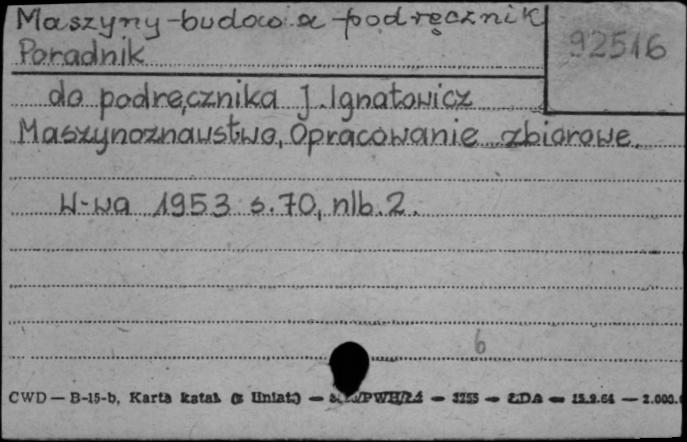 Maszyny-budowa-podręcznik
92516
Poradnik
do podręcznika J. Ignatowicz
Maszynoznawstwo, Opracowanie zbiorowe.
W-wa 1953 s. 70, nlb. 2.
6
CWD — B-15-b, Karta katal. (z liniat.) — — 3255 — ŁDA — 15.9.64 — 2.000.